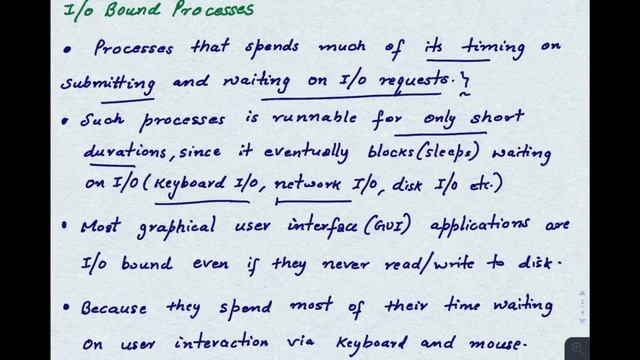 I/o Bound Processes
• Processes that spends much of its timing on
submitting and waiting on I/o requests.
• Such processes is runnable for only short
durations, since it eventually blocks(sleeps) waiting
on I/o (Keyboard I/o, network I/o, disk I/o etc.)
• Most graphical user interface (GUI) applications are
I/o bound even if they never read/write to disk.
• Because they spend most of their time waiting
on user interaction via keyboard and mouse.